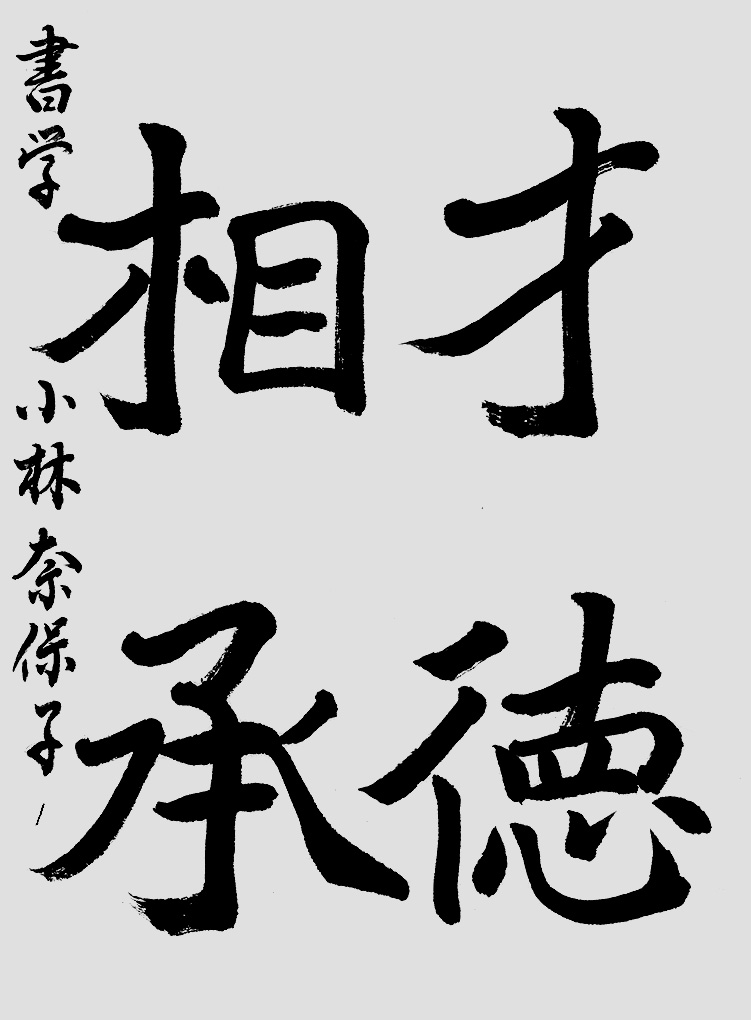 才徳
相承
書学 小林奈保子